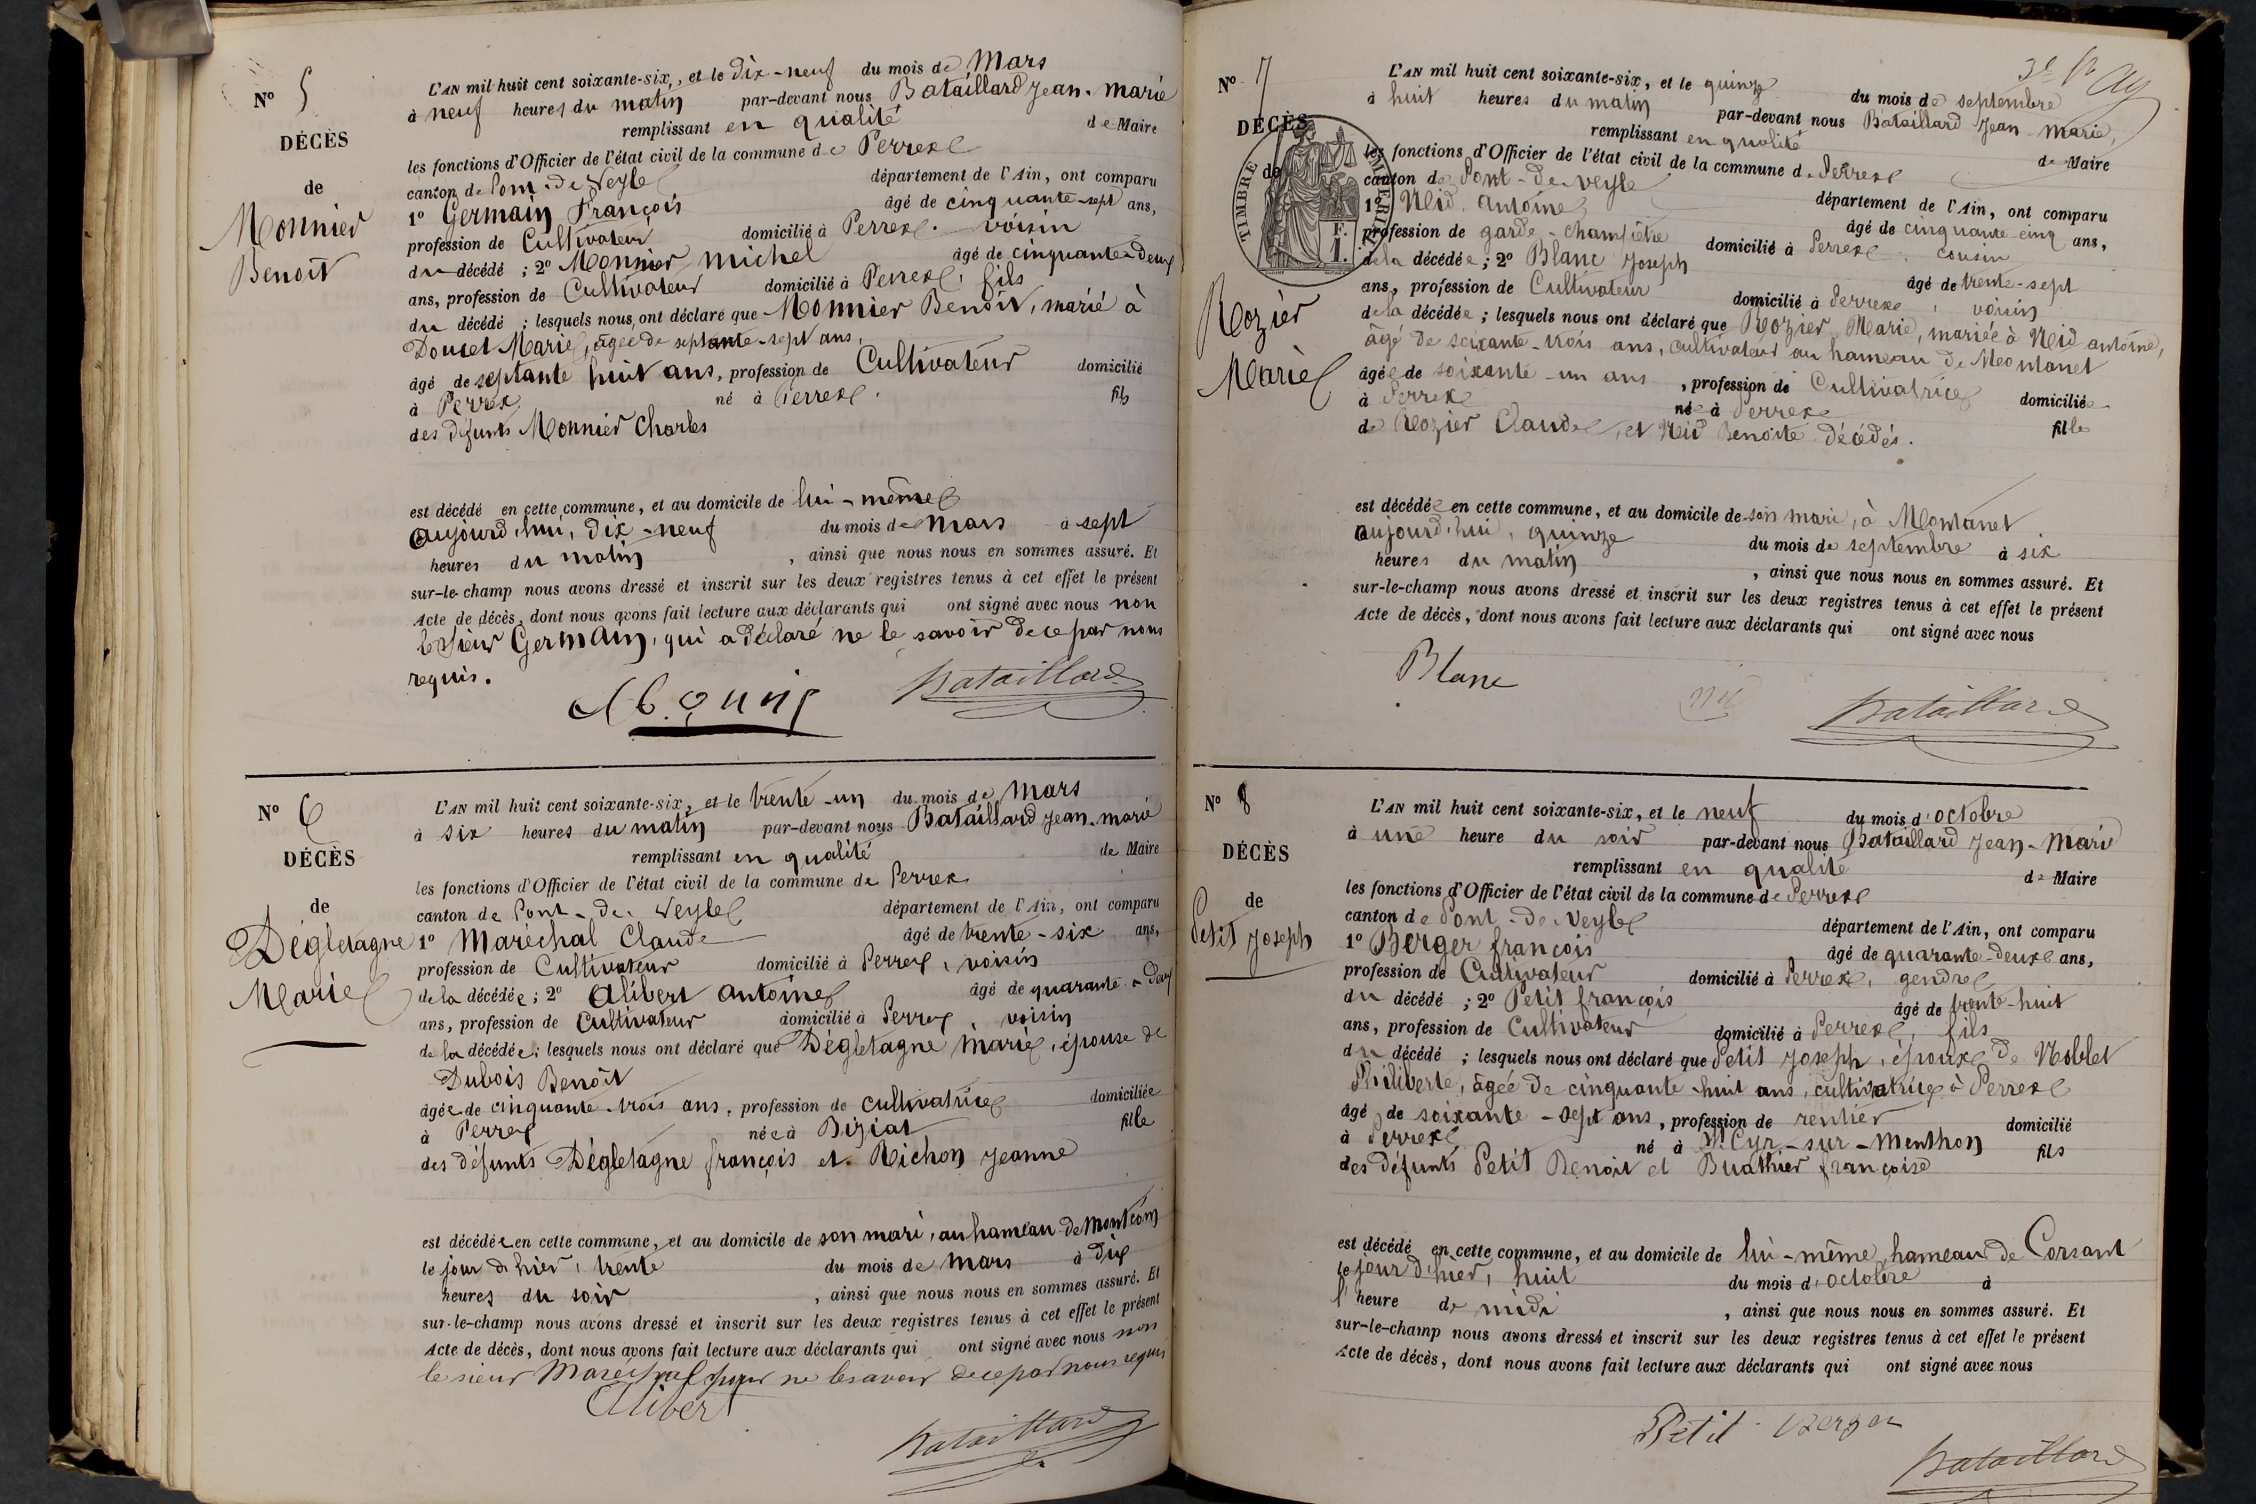 N° 5
DÉCÈS
de
Monnier
Benoît
L'AN mil huit cent soixante-six, et le dix-neuf du mois de Mars
à neuf heures du matin par-devant nous Bataillard Jean-Marie
remplissant en qualité de Maire
les fonctions d'Officier de l'état civil de la commune de Perrex
canton de Pont-de-Veyle département de l'Ain, ont comparu
1° Germain François âgé de cinquante-sept ans,
profession de Cultivateur domicilié à Perrex. voisin
du décédé ; 2° Monnier Michel âgé de cinquante-deux
ans, profession de Cultivateur domicilié à Perrex, fils
du décédé ; lesquels nous ont déclaré que Monnier Benoît, marié à
Doucet Marie, âgée de septante-sept ans,
âgé de septante huit ans, profession de Cultivateur domicilié
à Perrex né à Perrex. fils
des défunts Monnier Charles
est décédé en cette commune, et au domicile de lui-même
aujourd'hui, dix-neuf du mois de Mars à sept
heures du matin, ainsi que nous nous en sommes assuré. Et
sur-le-champ nous avons dressé et inscrit sur les deux registres tenus à cet effet le présent
Acte de décès, dont nous avons fait lecture aux déclarants qui ont signé avec nous non
le sieur Germain, qui a déclaré ne le savoir de ce par nous
requis.
Bataillard
N° 6
DÉCÈS
de
Dégletagne
Marie
L'AN mil huit cent soixante-six, et le trente-un du mois de Mars
à six heures du matin par-devant nous Bataillard Jean-Marie
remplissant en qualité de Maire
les fonctions d'Officier de l'état civil de la commune de Perrex
canton de Pont-de-Veyle département de l'Ain, ont comparu
1° Maréchal Claude âgé de trente-six ans,
profession de Cultivateur domicilié à Perrex, voisin
de la décédée ; 2° Alibert Antoine âgé de quarante-deux
ans, profession de Cultivateur domicilié à Perrex, voisin
de la décédée ; lesquels nous ont déclaré que Dégletagne Marie, épouse de
Dubois Benoît
âgée de cinquante-trois ans, profession de cultivatrice domiciliée
à Perrex née à Biziat fille
des défunts Dégletagne françois et Richon Jeanne
est décédée en cette commune, et au domicile de son mari, au hameau de Montcom
le jour d'hier, trente du mois de Mars à dix
heures du soir, ainsi que nous nous en sommes assuré. Et
sur-le-champ nous avons dressé et inscrit sur les deux registres tenus à cet effet le présent
Acte de décès, dont nous avons fait lecture aux déclarants qui ont signé avec nous non
le sieur Maréchal pour ne le savoir de ce par nous requis
Alibert
Bataillard
N° 7
DÉCÈS
de
Rozier
Marie
TIMBRE IMPÉRIAL
1 F.
L'AN mil huit cent soixante-six, et le quinze du mois de septembre
à huit heures du matin par-devant nous Bataillard Jean-Marie,
remplissant en qualité de Maire
les fonctions d'Officier de l'état civil de la commune de Perrex
canton de Pont-de-Veyle département de l'Ain, ont comparu
1° Neid Antoine âgé de cinquante-cinq ans,
profession de garde-champêtre domicilié à Perrex, cousin
de la décédée ; 2° Blanc Joseph âgé de trente-sept
ans, profession de Cultivateur domicilié à Perrex, voisin
de la décédée ; lesquels nous ont déclaré que Rozier Marie, mariée à Neid antoine,
âgé de soixante-trois ans, cultivateur au hameau de Montanet
âgée de soixante-un ans, profession de Cultivatrice domiciliée
à Perrex née à Perrex fille
de Rozier Claude, et Neid Benoite décédés.
est décédée en cette commune, et au domicile de son mari, à Montanet
aujourd'hui, quinze du mois de septembre à six
heures du matin, ainsi que nous nous en sommes assuré. Et
sur-le-champ nous avons dressé et inscrit sur les deux registres tenus à cet effet le présent
Acte de décès, dont nous avons fait lecture aux déclarants qui ont signé avec nous
Blanc
Bataillard
N° 8
DÉCÈS
de
Petit Joseph
L'AN mil huit cent soixante-six, et le neuf du mois d'octobre
à une heure du soir par-devant nous Bataillard Jean-Marie
remplissant en qualité de Maire
les fonctions d'Officier de l'état civil de la commune de Perrex
canton de Pont-de-Veyle département de l'Ain, ont comparu
1° Berger françois âgé de quarante-deux ans,
profession de Cultivateur domicilié à Perrex, gendre
du décédé ; 2° Petit françois âgé de trente-huit
ans, profession de Cultivateur domicilié à Perrex, fils
du décédé ; lesquels nous ont déclaré que Petit Joseph, époux de Noblet
Philiberte, âgée de cinquante-huit ans, cultivatrice à Perrex
âgé de soixante-sept ans, profession de rentier domicilié
à Perrex né à St Cyr-sur-Menthon fils
des défunts Petit Benoit et Buathier françoise
est décédé en cette commune, et au domicile de lui-même, hameau de Corsant
le jour d'hier, huit du mois d'octobre à
l'heure de midi, ainsi que nous nous en sommes assuré. Et
sur-le-champ nous avons dressé et inscrit sur les deux registres tenus à cet effet le présent
Acte de décès, dont nous avons fait lecture aux déclarants qui ont signé avec nous
Petit Berger
Bataillard